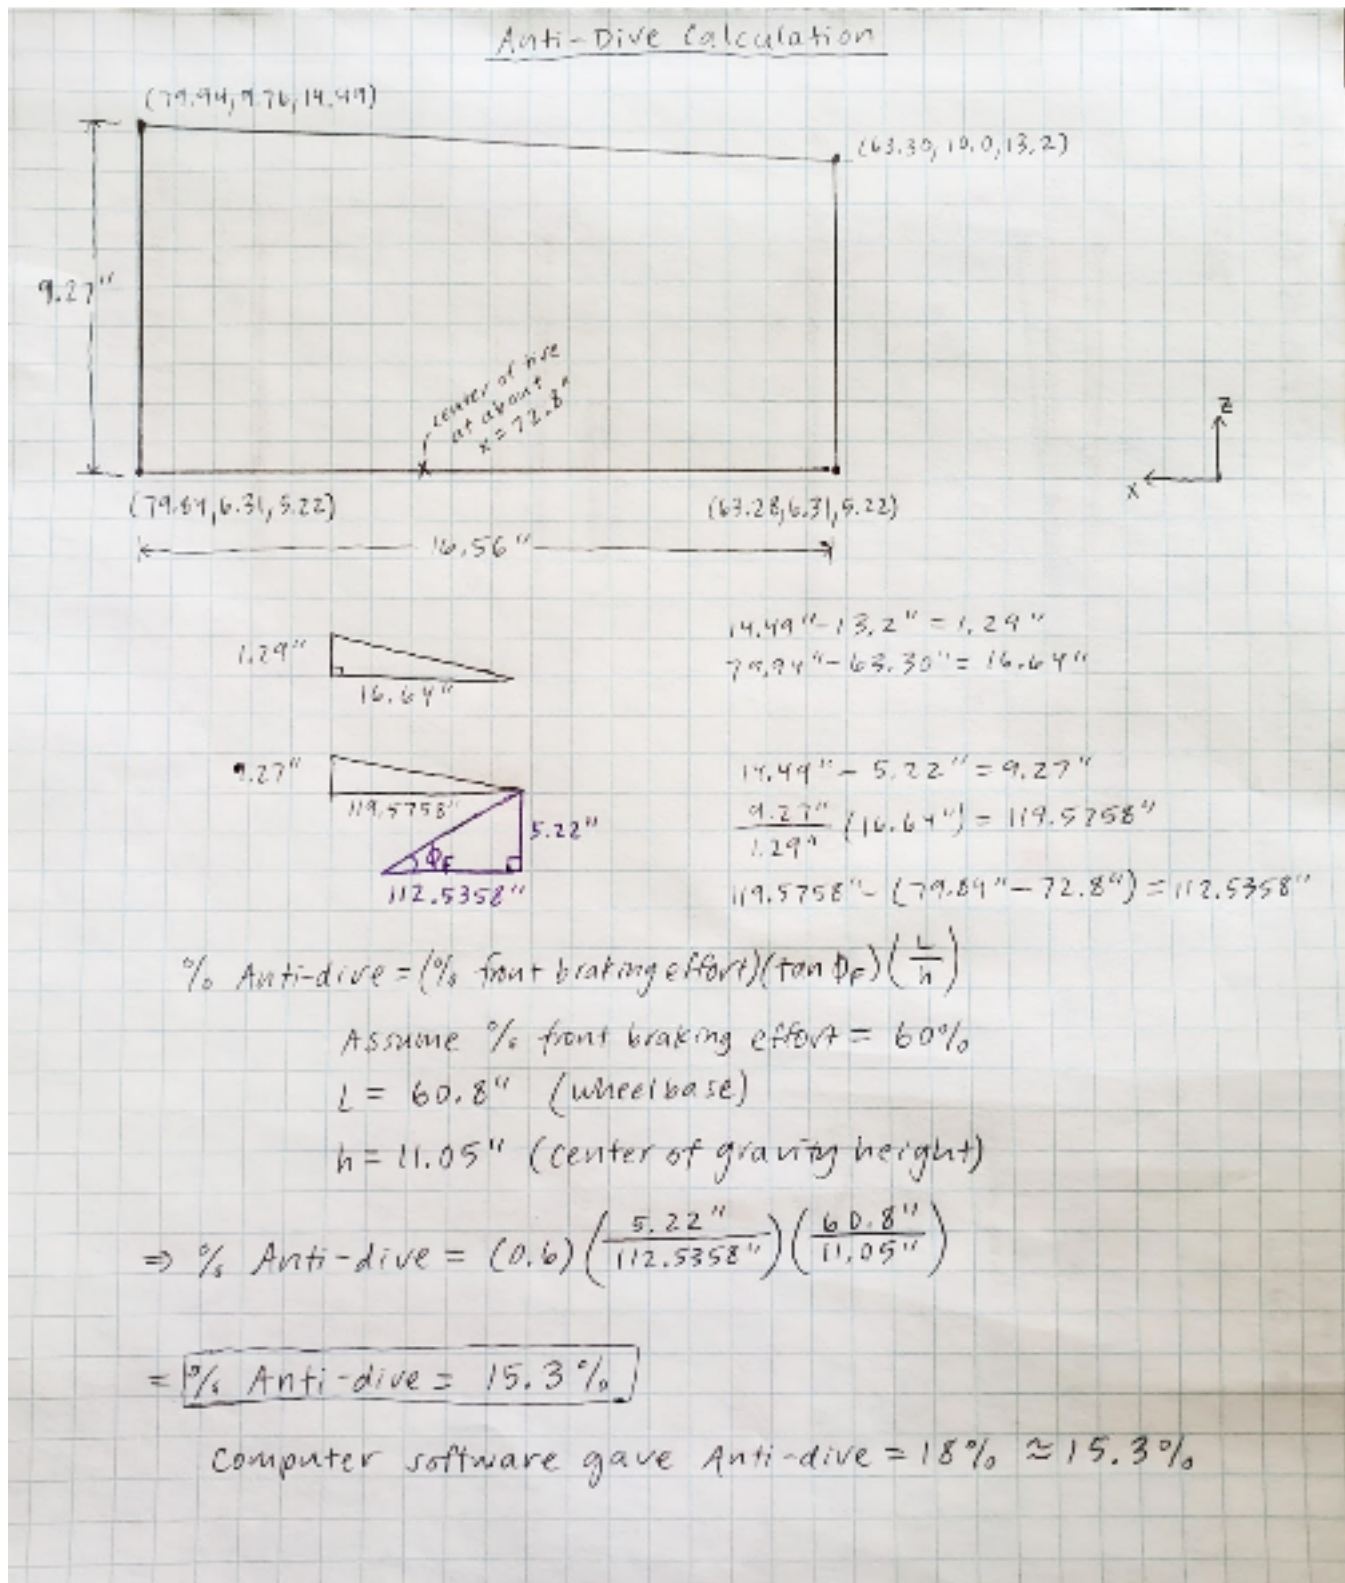 Anti-Dive Calculation
(79.94, 9.76, 14.49)
(63.30, 10.0, 13.2)
9.27"
center of tire
at about
x = 72.8"
z
x
(79.84, 6.31, 5.22)
(63.28, 6.31, 5.22)
16.56"
14.49" - 13.2" = 1.29"
1.29"
79.94" - 63.30" = 16.64"
16.64"
9.27"
14.49" - 5.22" = 9.27"
119.5758"
5.22"
9.27"/1.29" (16.64") = 119.5758"
ΦF
112.5358"
119.5758" - (79.84" - 72.8") = 112.5358"
% Anti-dive = (% front braking effort)(tan ΦF)(L/h)
Assume % front braking effort = 60%
L = 60.8" (wheelbase)
h = 11.05" (center of gravity height)
⇒ % Anti-dive = (0.6)(5.22"/112.5358")(60.8"/11.05")
= % Anti-dive = 15.3%
Computer software gave Anti-dive = 18% ≈ 15.3%